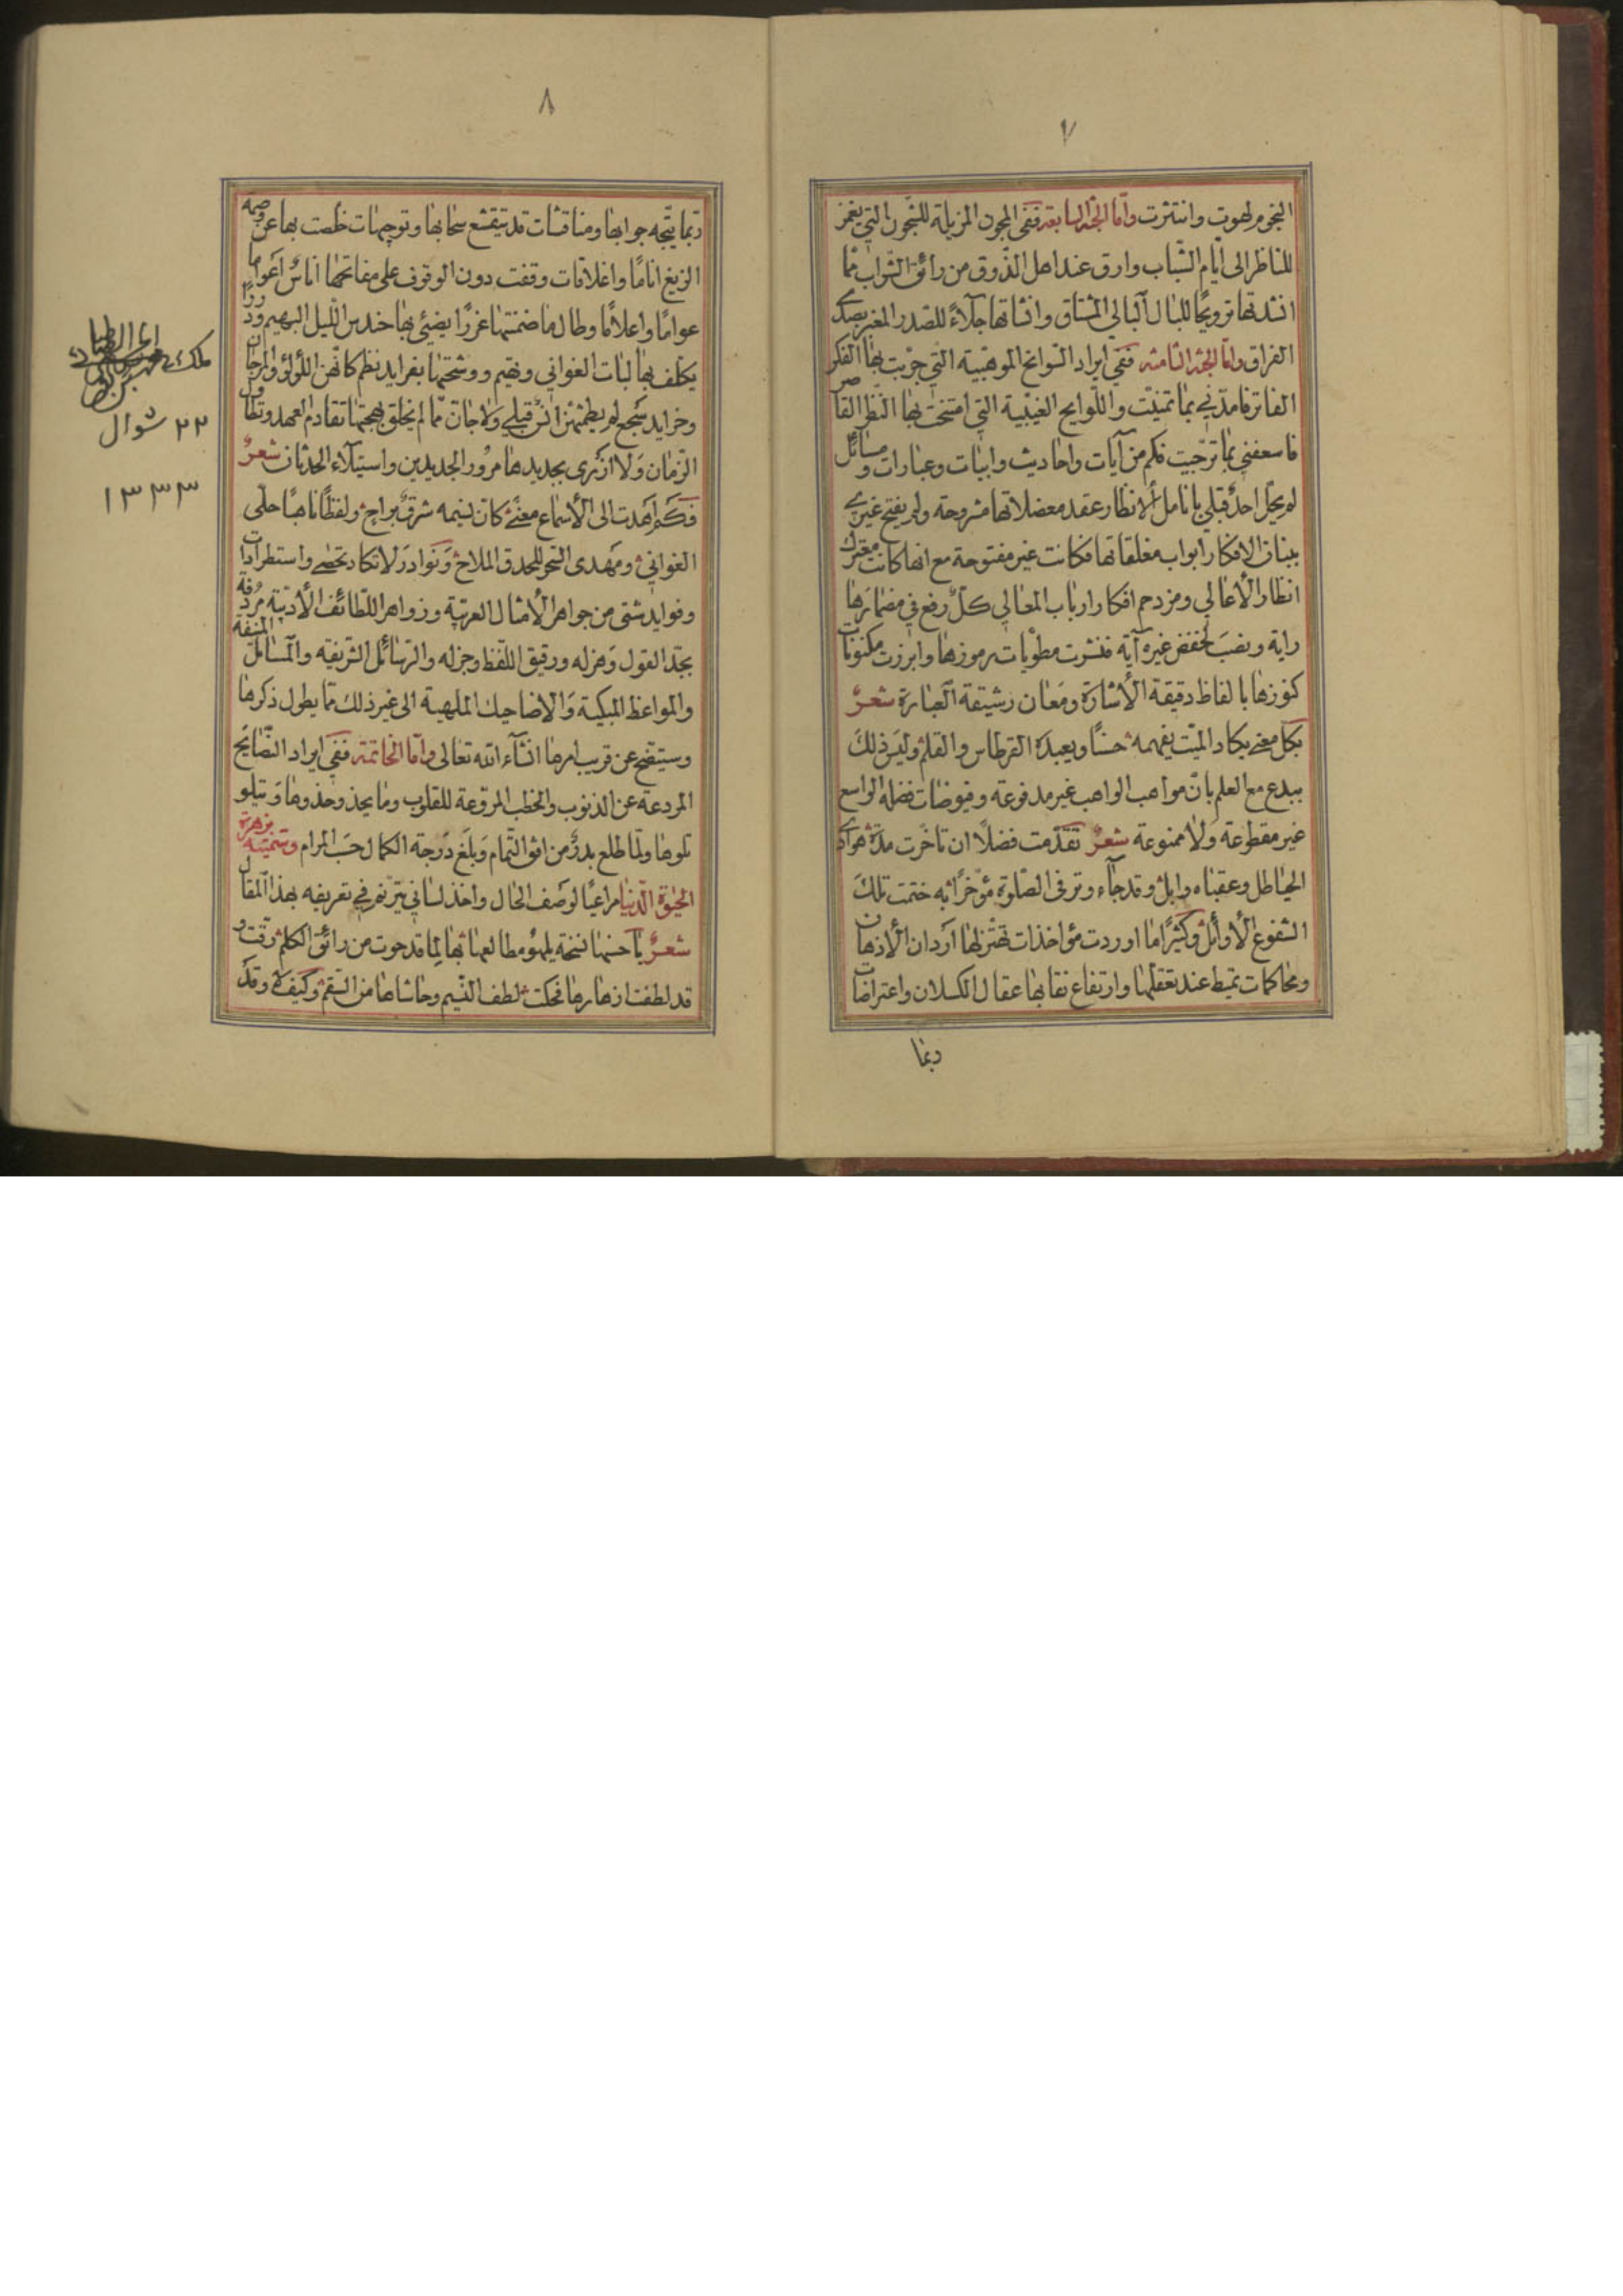 ٧
النجوم لهوت وانتثرت وامّا الجثر السابعة ففي المجون المزيلة للشجون التي يغمز
للناظر الى ايّام الشّباب وارق عند اهل الذّوق من رائق الشّراب ممّا
انشدتها ترويحًا للبال البالي المشتاق وانشاتها جلاءً للصّدر المغبر بصدى
الفراق وامّا الجثر الثامنه ففي ايراد السّوانح الموهبيّة التي جوّبت بها الفكر
الفاتر فامدّني بما تمنّيت واللّوايح الغيبيّة التي امتحت بها النّظر القاصر
فاسعفني بما ترجّيت فكم من آيات واحاديث وابيات وعبارات ومسائل
لم يحلّ احدٌ قبلي بانامل الانظار عقد معضلاتها مشروحة ولم يفتح غيري
ببنان الافكار ابواب مغلقاتها فكانت غير مفتوحة مع انها كانت معترك
انظار الأعالي ومزدحم افكار ارباب المعالي كلّ رفع في مضمارها
راية ونصب لخفض غيره آية فنشرت مطويات رموزها وابرزت مكنونات
كنوزها بالفاظ دقيقة الأشارة ومعان رشيقة العبارة شعرٌ
بكل معنى يكاد الميّت يفهمه حسنًا ويعبده القرطاس والقلم وليس ذلك
ببدع مع العلم بانّ مواهب الواهب غير مدفوعة وفيوضات فضله الواسع
غير مقطوعة ولا ممنوعة شعرٌ تقدّمت فضلًا ان تاخّرت مدّة هوادي
الحيا طل وعقباه وابل وقد جآء وترفي الصّلوة مؤخرًا به ختمت تلك
الشفوع الأوائل وكثيرًا ما اوردت مؤاخذات تهتزّ لها آردان الأذهان
ومحاكمات تميط عند تعقلها وارتفاع نقابها عقال الكسلان واعتراضات
ربما
٨
ربّما يتّجه جوابها ومناقشات قد يتقشع سحابها وتوجيهات خلصت بها عن وصمة
الزيغ انامًا واغلاقات وقفت دون الوقوف على مفاتحها اناسٌ اعواما
عوامًا واعلامًا وطال ما ضمنتها غررًا يضيئ بها حندس اللّيل البهيم ودررًا
يكلف بها لبات الغواني وتهيم ووشحتها بفرايد نظم كانّهن اللّؤلؤ والمرجان
وخرايد سجع لم يطمثهنّ انسٌ قبلي ولا جانّ ممّا لم يخلق بهجتها تقادم العهد وتطاول
الزّمان ولا ازرى بجديدها مرور الجديدين واستيلاء الحدثان شعرٌ
فكم اهدت الى الأسماع معنى كان نسيمه شرق براح ولفظًا ناهبًا حلى
الغواني ومهدى السّحر للحدق الملاح ونوادر لا تكاد تحصى واستطرادات
وفوايد شتى من جواهر الأمثال العربيّة وزواهر اللّطائف الأدبيّة مردفة
بجدّ القول وهزله ورقيق اللّفظ وجزله والرّسائل الشّريفه والمسائل المنيفة
والمواعظ المبكية والاضاحيك الملهية الى غير ذلك ممّا يطول ذكرها
وسيتّضح عن قريب امرها انشآء الله تعالى وامّا الخاتمة ففي ايراد النّصايح
المردعة عن الذنوب والخطب المروّعة للقلوب وما يحذو حذوها ويتلو
تلوها ولمّا طلع بدرٌ من افق التّمام وبلغ درجة الكمال حسب المرام وسمّيته بزهرة
الحيٰوة الدّنيا مراعيًا لوصف الحال واخذ لساني يترنّم في تعريفه بهذا المقال
شعرٌ يا حسنها نسخة يلهو مطالعها بها لما قد حوت من رائق الكلم رقّت و
قد لطفت ازهارها فحكت لطف النّسيم وحاشاها من السّقم وكيف لا وقد
٢٢ شوال
١٣٣٣